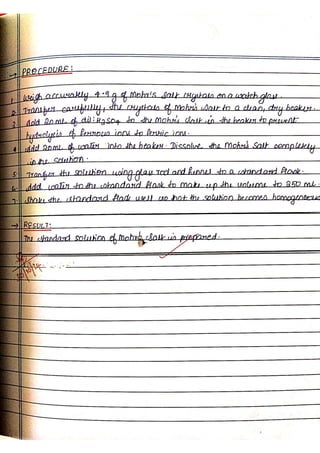 → PROCEDURE:
1. Weigh accurately 4.9 g of Mohr's Salt crystals on a watch glass.
2. Transfer carefully, the crystals of Mohr's Salt to a clean, dry beaker.
3. Add 20 mL of dil. H₂SO₄ to the Mohr's Salt in the beaker to prevent
hydrolysis of ferrous ions to ferric ions.
4. Add 20 mL of water into the beaker. Dissolve the Mohr's salt completely
in the solution.
5. Transfer the solution using glass rod and funnel to a standard flask.
6. Add water to the standard flask to make up the volume to 250 mL.
7. Shake the standard flask well so that the solution becomes homogeneous
→ RESULT:
The standard solution of Mohr's Salt is prepared.